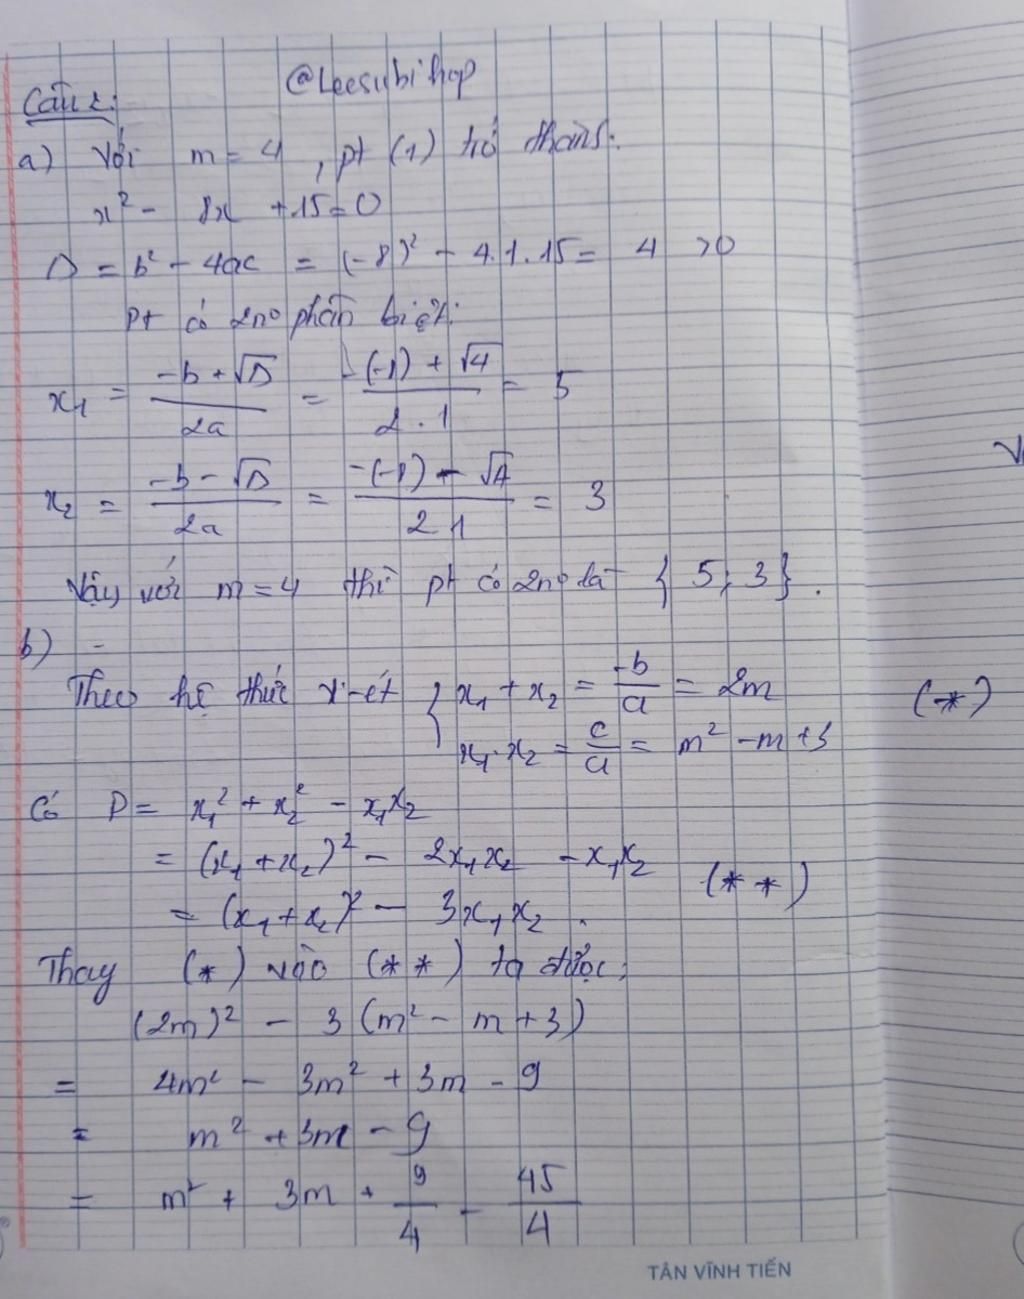 @Leesubihop
Câu 2:
a) Với m = 4, pt (1) trở thành:
x² - 8x + 15 = 0
Δ = b² - 4ac = (-8)² - 4.1.15 = 4 > 0
Pt có 2no phân biệt:
x₁ = (-b + √Δ)/(2a) = (-(-8) + √4)/(2.1) = 5
x₂ = (-b - √Δ)/(2a) = (-(-8) - √4)/(2.1) = 3
Vậy với m = 4 thì pt có 2no là { 5; 3 }.
b) -
Theo hệ thức Vi-ét { x₁ + x₂ = -b/a = 2m
x₁.x₂ = c/a = m² - m + 3
(*)
Có P = x₁² + x₂² - x₁x₂
= (x₁ + x₂)² - 2x₁x₂ - x₁x₂
(**)
= (x₁ + x₂)² - 3x₁x₂.
Thay (*) vào (**) ta được:
(2m)² - 3(m² - m + 3)
= 4m² - 3m² + 3m - 9
= m² + 3m - 9
= m² + 3m + 9/4 - 45/4
TÂN VĨNH TIẾN